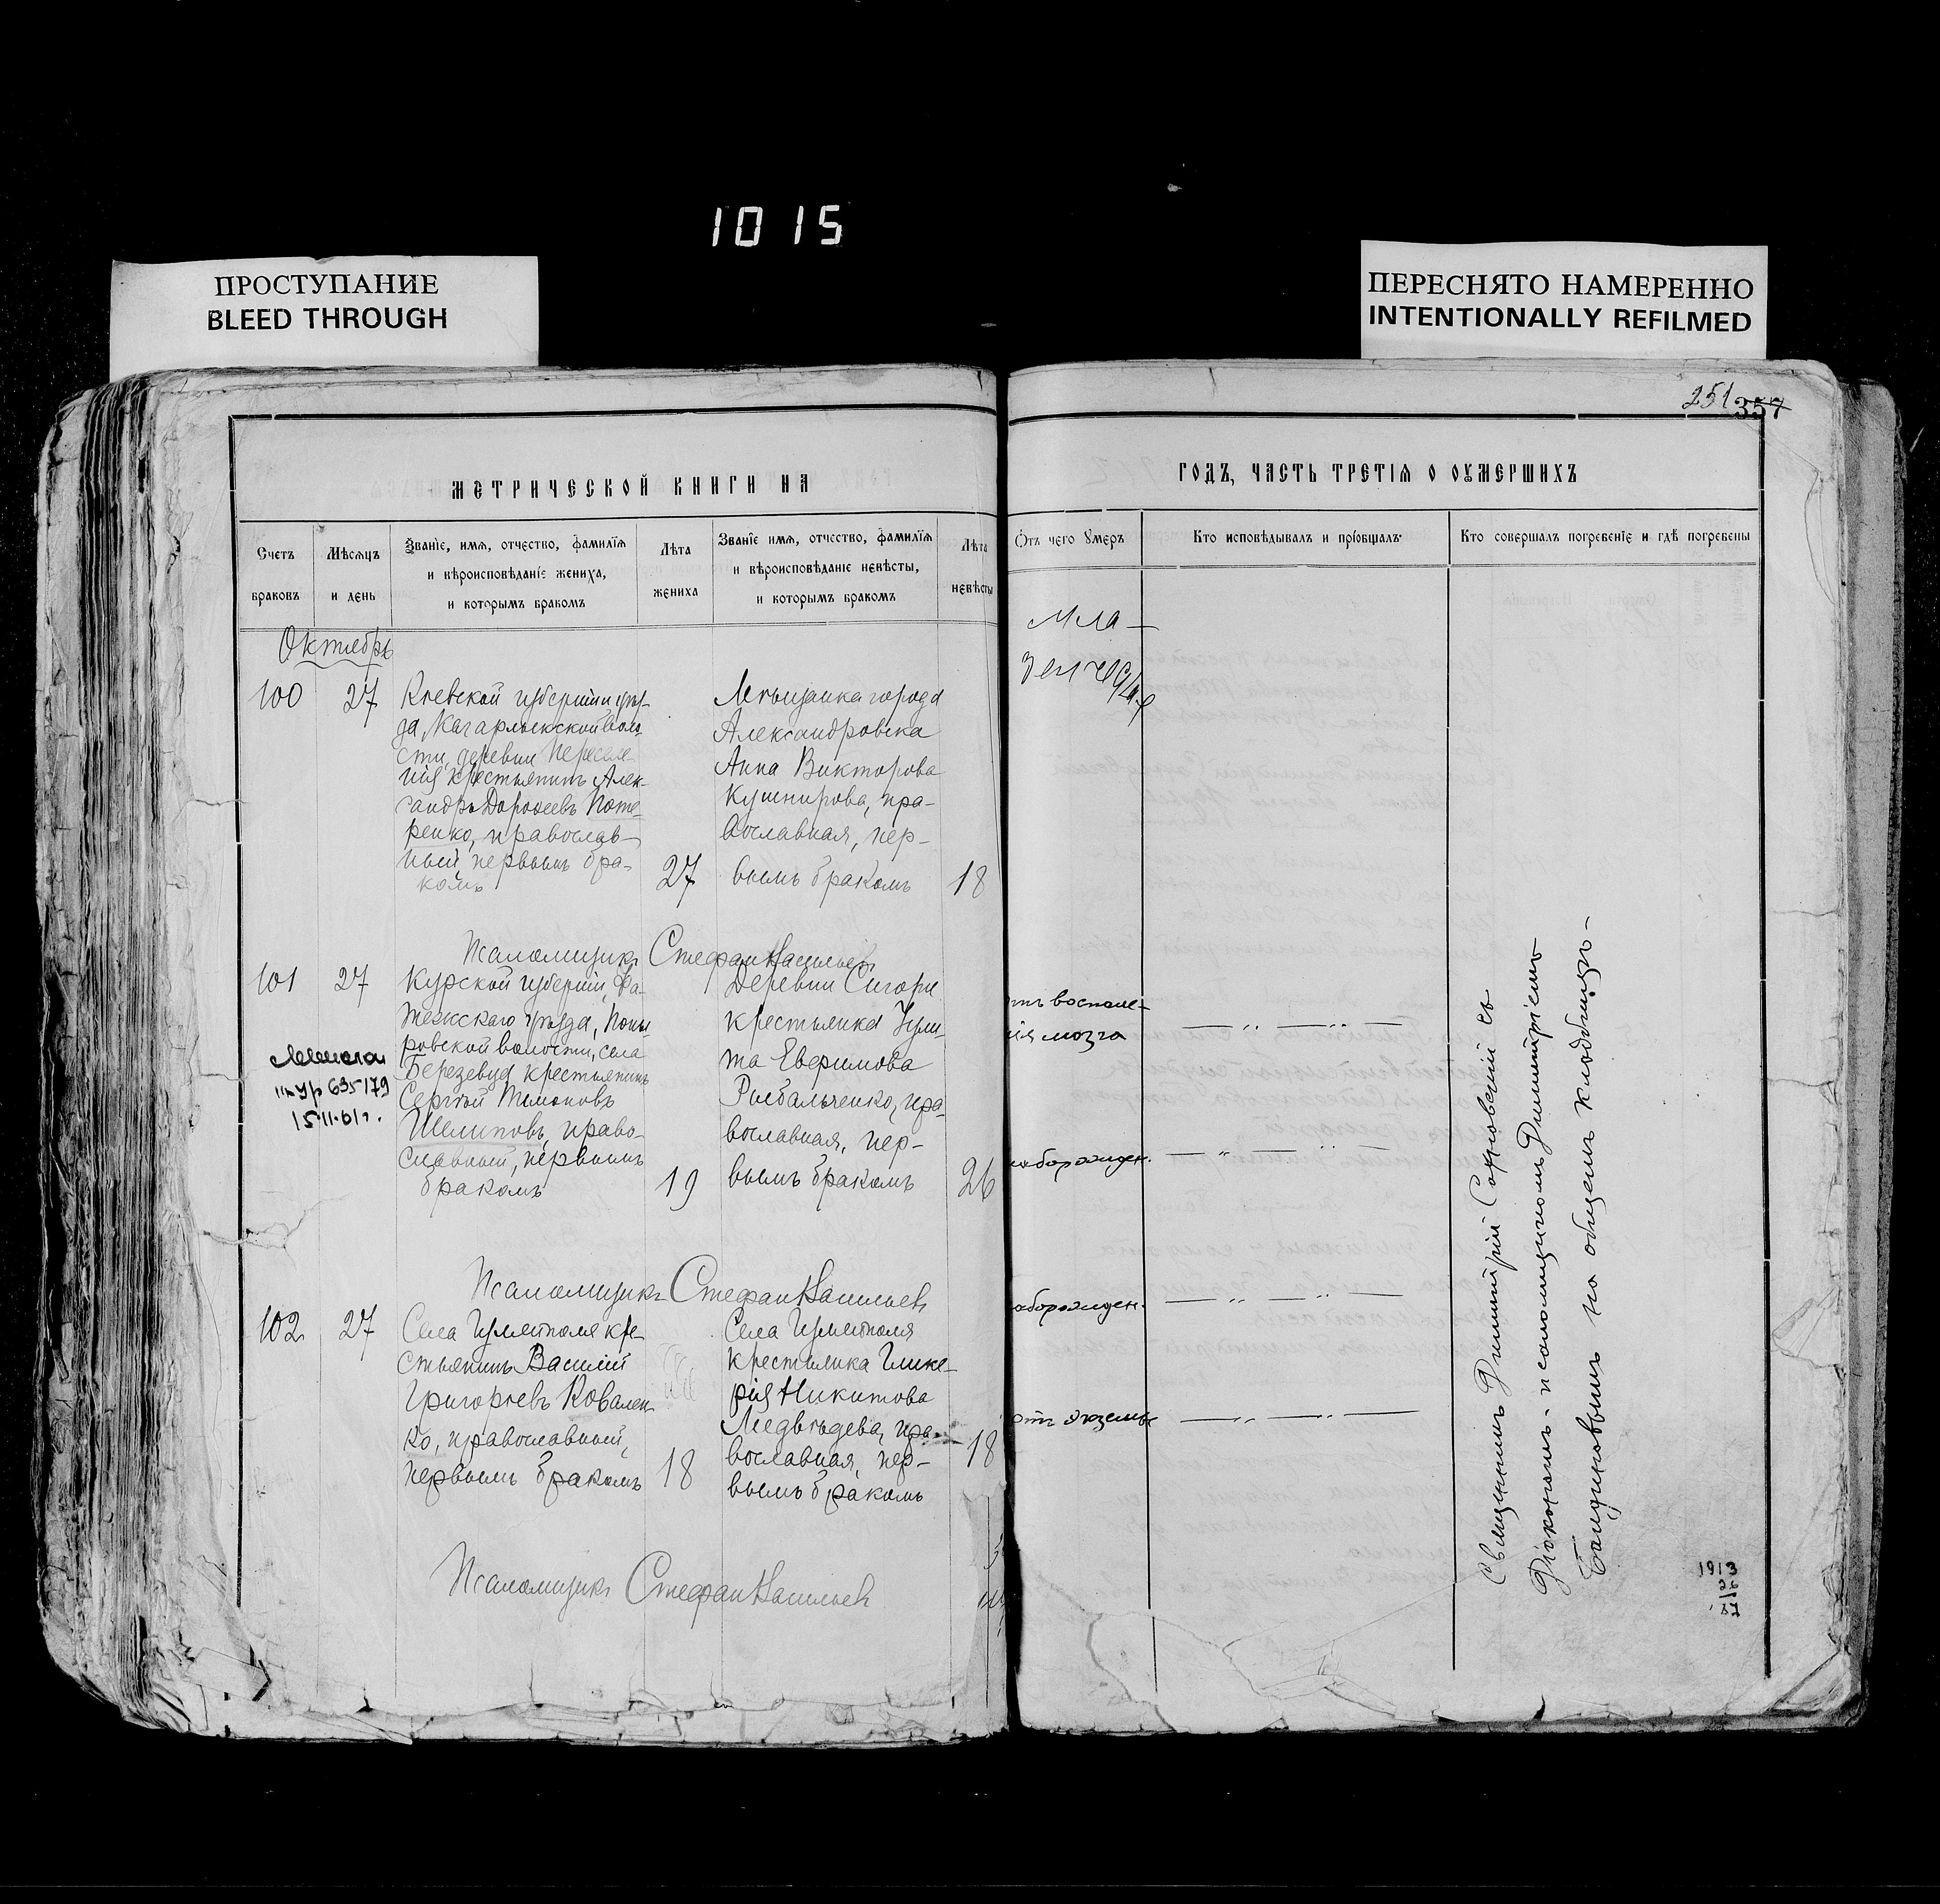 1015
ПРОСТУПАНИЕ
BLEED THROUGH
ПЕРЕСНЯТО НАМЕРЕННО
INTENTIONALLY REFILMED
МЕТРИЧЕСКОЙ КНИГИ НА
Счетъ браковъ
Мѣсяцъ и день
Званіе, имя, отчество, фамилія
и вѣроисповѣданіе жениха,
и которымъ бракомъ
Лѣта жениха
Званіе имя, отчество, фамилія
и вѣроисповѣданіе невѣсты,
и которымъ бракомъ
Лѣта невѣсты
Октябрь
100 27
Кіевской губерніи уѣз-
да, Кагарлыкской воло-
сти, деревни Переселе-
нія крестьянинъ Алек-
сандръ Дорофеевъ Поте-
ренко, православ-
ный, первымъ бра-
комъ
27
Мѣщанка города
Александровска
Анна Викторова
Кушнирова, пра-
вославная, пер-
вымъ бракомъ
18
Псаломщикъ Стефан Васильев
101 27
Курской губерніи, Фа-
тежскаго уѣзда,
ровской волости, села
крестьянинъ
Сергѣй
Шелиповъ, право-
славный, первымъ
бракомъ
19
635179
15.11.61г.
Деревни
крестьянка Ули-
та Евфимова
Рыбальченко, пра-
вославная, пер-
вымъ бракомъ
26
Псаломщикъ Стефан Васильев
102 27
Села Гуляйполя кре-
стьянинъ Василій
Григорьевъ Ковален-
ко, православный,
первымъ бракомъ
18
Села Гуляйполя
крестьянка Глике-
рія Никитова
Медвѣдева, пра-
вославная, пер-
вымъ бракомъ
18
Псаломщикъ Стефан Васильев
251 357
ГОДЪ, ЧАСТЬ ТРЕТІЯ О ОУМЕРШИХЪ
Отъ чего умеръ
Кто исповѣдывалъ и пріобщалъ
Кто совершалъ погребеніе и гдѣ погребены
Мла-
тъ воспале-
ія мозга
аборожден.
аборожден.
отъ экземы
Священникъ Димитрій Сосновскій съ
Діакономъ-псаломщикомъ Димитріемъ
на общемъ кладбищѣ-
1913